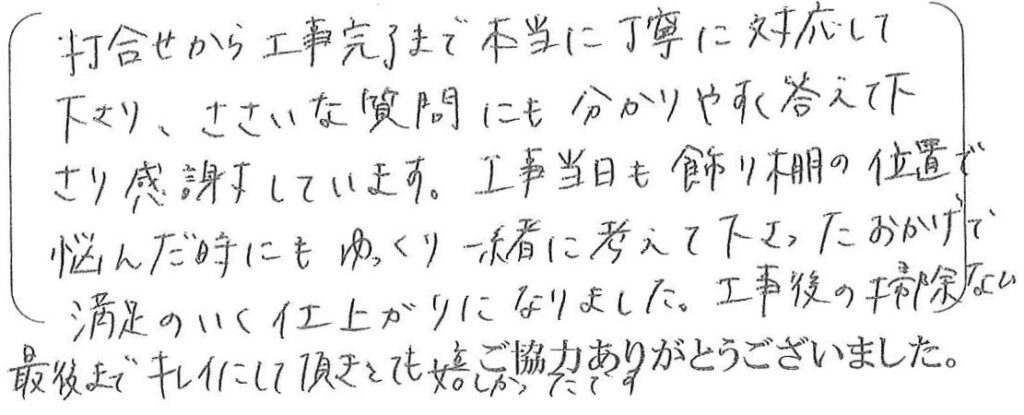 打合せから工事完了まで本当に丁寧に対応して
下さり、ささいな質問にも分かりやすく答えて下
さり感謝しています。工事当日も飾り棚の位置で
悩んだ時にもゆっくり一緒に考えて下さったおかげで
満足のいく仕上がりになりました。工事後の掃除など
最後までキレイにして頂きとても嬉しかったです
ご協力ありがとうございました。